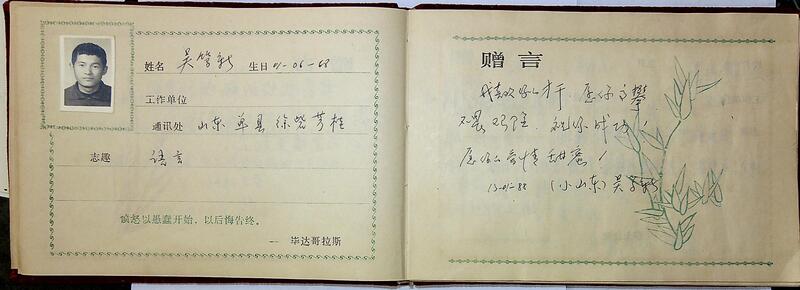 姓名 吴学新 生日 01-06-68
工作单位
通讯处 山东 单县 徐砦 芳桂
志趣 语言
愤怒以愚蠢开始，以后悔告终。
— 毕达哥拉斯
赠言
我喜欢你的才干，愿你高攀
不畏艰险，祝你成功！
愿你的爱情甜蜜！
13-01-88 （小山东）吴学新